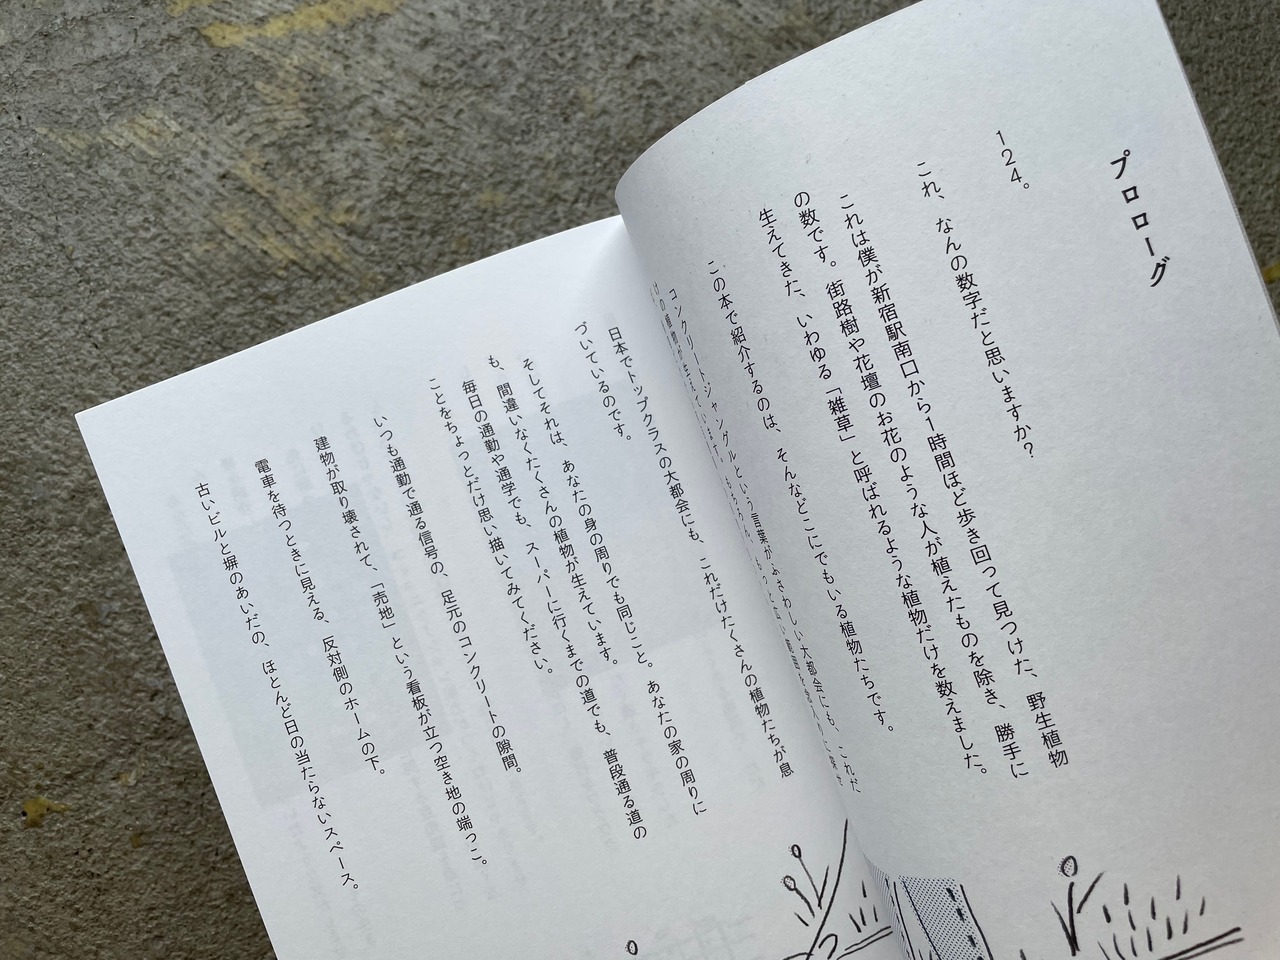 プロローグ
124。
これ、なんの数字だと思いますか？
これは僕が新宿駅南口から1時間ほど歩き回って見つけた、野生植物
の数です。街路樹や花壇のお花のような人が植えたものを除き、勝手に
生えてきた、いわゆる「雑草」と呼ばれるような植物だけを数えました。
この本で紹介するのは、そんなどこにでもいる植物たちです。
コンクリートジャングルという言葉がふさわしい大都会にも、これだ
けの植物が生えています。もちろん、もっと広い範囲を
日本でトップクラスの大都会にも、これだけたくさんの植物たちが息
づいているのです。
そしてそれは、あなたの身の周りでも同じこと。あなたの家の周りに
も、間違いなくたくさんの植物が生えています。
毎日の通勤や通学でも、スーパーに行くまでの道でも、普段通る道の
ことをちょっとだけ思い描いてみてください。
いつも通勤で通る信号の、足元のコンクリートの隙間。
建物が取り壊されて、「売地」という看板が立つ空き地の端っこ。
電車を待つときに見える、反対側のホームの下。
古いビルと塀のあいだの、ほとんど日の当たらないスペース。